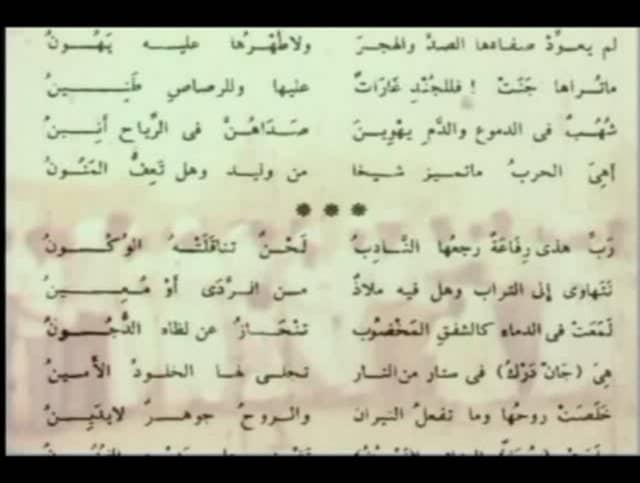 لم يعوَّد صفاءها الصدَّ والهجرَ ولا طُهْرُها عليه يَهُونُ
ما تُراها جَنَتْ ! فللجُنْدِ غَاراتٌ عليها وللرصاصِ طَنِينُ
شُهُبٌ فى الدموع والدَّمِ يهْوِينَ صَدَاهُنَّ فى الرِّياح أَنِينُ
أهِىَ الحربُ ما تميز شيخا من وليد وهل تَعِفُّ المَنُونُ
* * *
رَبِّ هذى رِفَاعَةٌ رجعُها النَّادِبُ لَحْنٌ تناقَلَتْهُ الوُكُونُ
تَتَهاوى إلى التراب وهل فيه ملاذٌ من الرَّدَى أوْ مُعِينُ
لَمَعَتْ فى الدماء كالشفقِ المَخْضُوبِ تنْحَازُ عن لظاه الدُّجُونُ
هِىَ (جَانْ دَرْكُ) فى ستار من النار تجلى لها الخلودُ الأَمينُ
خَلَصَتْ روحُها وما تفعلُ النيران والروحُ جوهرٌ لايَدِينُ